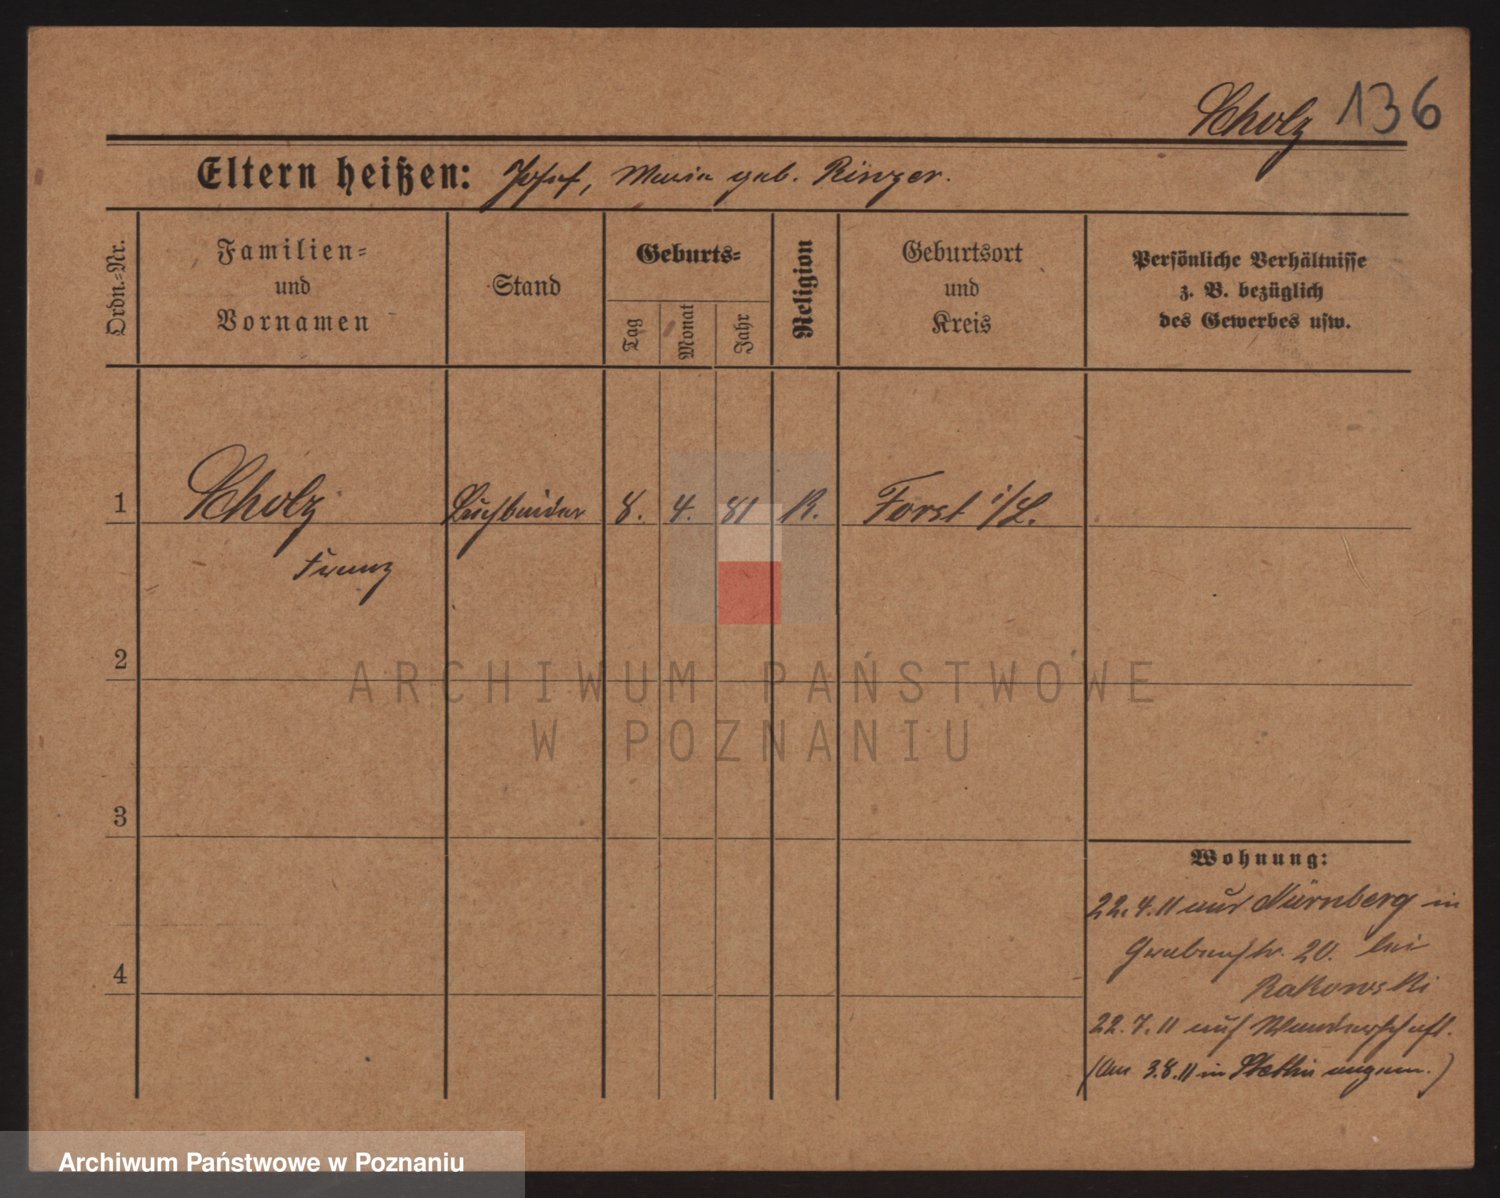 Scholz 136
Eltern heißen: Josef, Maria geb. Rinzer.
Ordn.-Nr.
Familien-
und
Vornamen
Stand
Geburts-
Tag
Monat
Jahr
Religion
Geburtsort
und
Kreis
Persönliche Verhältnisse
z. B. bezüglich
des Gewerbes usw.
1 Scholz Buchbinder 8. 4. 81 K. Forst i/L.
Franz
2
3
4
Wohnung:
22.4.11 aus Nürnberg in
Grabenstr. 20. bei
Rakowski
22.7.11 auf Wanderschaft.
(Am 3.8.11 in Stettin angem.)
ARCHIWUM PAŃSTWOWE
W POZNANIU
Archiwum Państwowe w Poznaniu